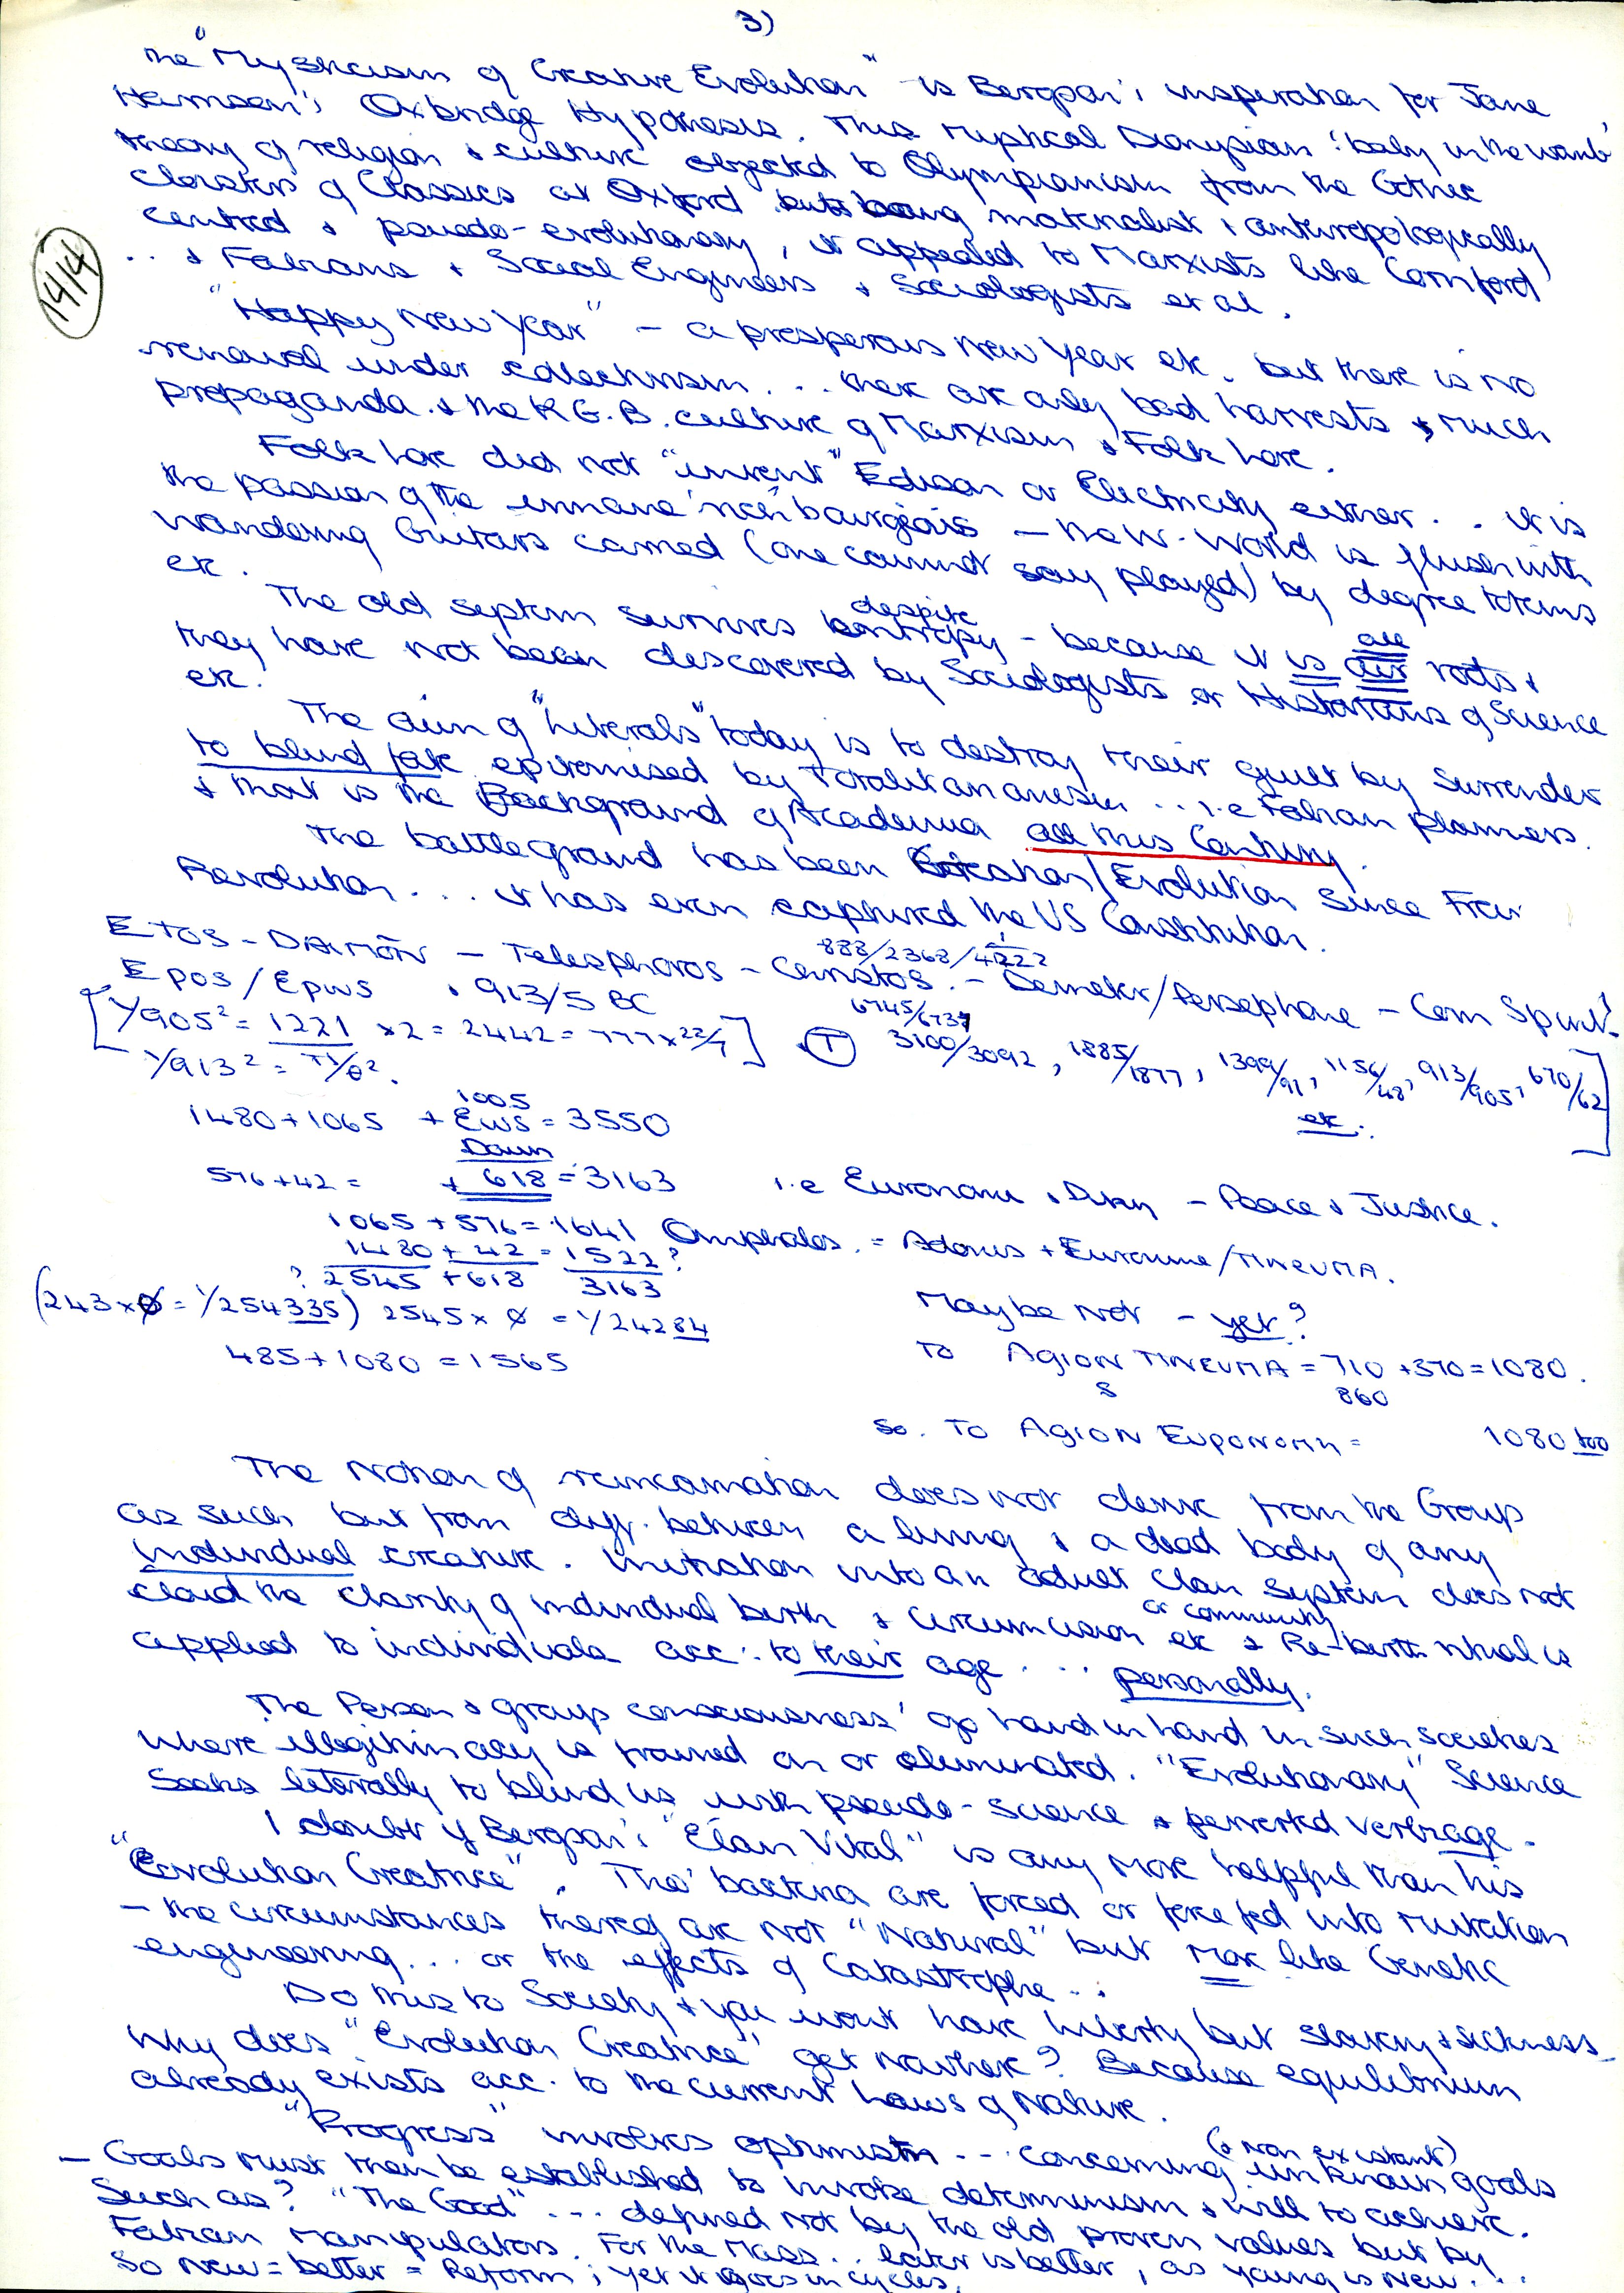 3)
The "Mysticism of Creative Evolution" is Bergson's inspiration for Jane
Harrison's Oxbridge Hypothesis. This mystical Dionysian 'baby in the womb'
theory of religion & culture objected to Olympianism from the Gothic
cloisters of Classics at Oxford but being materialist & anthropologically
centred & pseudo-evolutionary, it appealed to Marxists like Cornford
.. & Fabians & Social Engineers & Sociologists et al.
14/14
"Happy New Year" – a prosperous New Year etc. but there is no
renewal under collectivism... there are only bad harvests & much
propaganda & the K.G.B. culture of Marxism & Folk lore.
Folk lore did not "invent" Edison or Electricity either.. it is
the passion of the inmane 'rich' bourgeois – the W. World is flush with
wandering Guitars carried (one cannot say played) by degree totems
etc.
The old system survives despite entropy – because it is all air roots &
they have not been discovered by Sociologists or Historians of Science
etc.
The aim of "Liberals" today is to destroy their guilt by surrender
to blind fate epitomised by Totalitarianism... i.e Fabian planners.
& that is the Background of Academia all this Century.
The battleground has been Creation/Evolution since Fren
Revolution... it has even captured the US Constitution.
888/2368/4222
ETOS – DAIMÕN – Telesphoros – Christos. – Demeter/Persephone – Corn Spirit?
Epos/Epws . 913/5 BC
6745/6737
[ 1/905² = 1221 x2 = 2442 = 777 x 22/7 ] . (T) 3100/3092, 1885/1877, 1399/91, 1156/48, 913/905, 670/62 ]
1/913² = π/θ².
etc.
1005
1480 + 1065 + EWS = 3550
Dawn
576+42 = + 618 = 3163 i.e Euronome & Dikn – Peace & Justice.
1065 + 576 = 1641 Omphalos. = Adonis + Eurnume/ΠNEUMA.
1480 + 42 = 1522?
? 2545 + 618 3163
(243 x ø = 1/254335) 2545 x ø = 1/24284
Maybe not – yet?
485 + 1080 = 1565
TO AGION ΠNEUMA = 710 + 370 = 1080.
S 860
So. TO AGION EUPONOMH = 1080 too
The Notion of reincarnation does not derive from the Group
as such but from diff. between a living & a dead body of any
individual creature. Initiation into an adult clan system does not
cloud the clarity of individual birth & circumcision etc & Re-birth ritual is
or community
applied to individuals acc: to their age... personally.
The Person & group consciousness' go hand in hand in such societies
where illegitimacy is frowned on or eliminated. "Evolutionary" Science
seeks literally to blind us with pseudo-science & perverted verbiage.
I doubt if Bergson's "Élan Vital" is any more helpful than his
"Evolution Creatrice". Tho' bacteria are forced or force fed into mutation
– the circumstances thereof are not "Natural" but more like Genetic
engineering... or the effects of Catastrophe..
Do this to Society & you wont have liberty but slavery & sickness.
Why does "Evolution Creatrice" get nowhere? Because equilibrium
already exists acc. to the current Laws of Nature.
"Progress" involves optimism... concerning unknown goals
(& non existant)
– Goals must then be established to invoke determinism & will to achieve.
Such as? "The Good"... defined not by the old proven values but by
Fabian manipulators. For the mass.. later is better, as young is new...
So New = better = Reform; yet it goes in cycles.